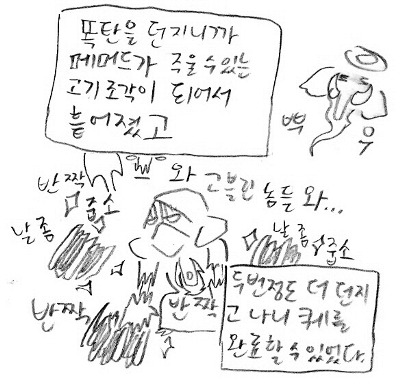 폭탄을 던지니까
메머드가 주울 수 있는
고기조각이 되어서
흩어졌고
뿌
우
반짝
와 고블린 놈들 와...
줍소
날 좀
날 좀
줍소
반짝
반짝
두번정도 더 던지
고 나니 퀘를
완료할 수 있었다.